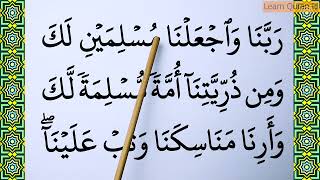 Learn Quran
رَبَّنَا وَٱجۡعَلۡنَا مُسۡلِمَيۡنِ لَكَ
وَمِن ذُرِّيَّتِنَآ أُمَّةٗ مُّسۡلِمَةٗ لَّكَ
وَأَرِنَا مَنَاسِكَنَا وَتُبۡ عَلَيۡنَآۖ